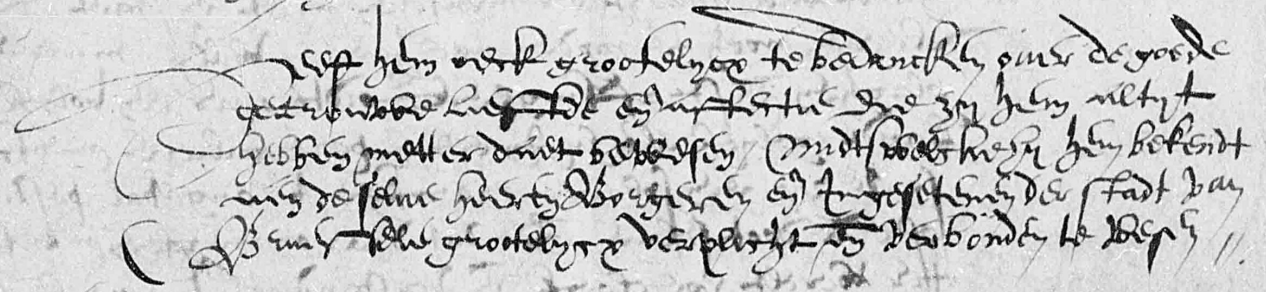 heeft hem oeck grootelycx te bedancken over de goede
getrouwe lieffde en affectie die zy hem altyt
hebben metter daet bewesen Midtswelcke hy hem bekendt
aen de selve heeren Borgeren en Ingesetenen der stadt van
Bruessele grootelycx verplicht en verbonden te wesen